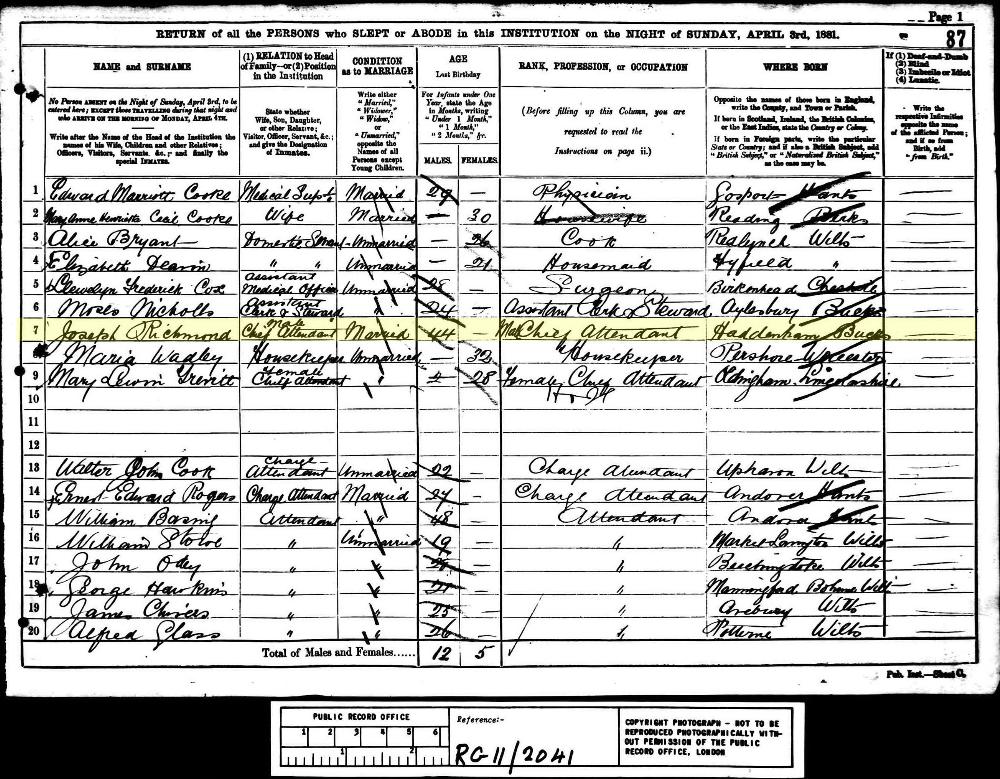 Page 1
87
RETURN of all the PERSONS who SLEPT or ABODE in this INSTITUTION on the NIGHT of SUNDAY, APRIL 3rd, 1881.
NAME and SURNAME
No Person ABSENT on the Night of Sunday, April 3rd, to be entered here; EXCEPT those TRAVELLING during that night and who ARRIVE ON THE MORNING OF MONDAY, APRIL 4TH.
Write after the Name of the Head of the Institution the names of his Wife, Children and other Relatives; Officers, Visitors, Servants, &c.; and finally the special INMATES.
(1) RELATION to Head of Family—or (2) Position in the Institution
State whether Wife, Son, Daughter, or other Relative; Visitor, Officer, Servant, &c.; and give the Designation of Inmates.
CONDITION as to MARRIAGE
Write either "Married," "Widower," "Widow," or "Unmarried," opposite the Names of all Persons except Young Children.
AGE
Last Birthday
For Infants under One Year, state the Age in Months, writing "Under 1 Month," "1 Month," "2 Months," &c.
MALES. FEMALES.
RANK, PROFESSION, or OCCUPATION
(Before filling up this Column, you are requested to read the Instructions on page ii.)
WHERE BORN
Opposite the names of those born in England, write the County, and Town or Parish.
If born in Scotland, Ireland, the British Colonies, or the East Indies, state the Country or Colony.
If born in Foreign parts, write the particular State or Country; and if also a British Subject, add "British Subject," or "Naturalised British Subject," as the case may be.
If (1) Deaf-and-Dumb
(2) Blind
(3) Imbecile or Idiot
(4) Lunatic.
Write the respective Infirmities opposite the name of the afflicted Person; and if so from Birth, add "from Birth."
1 Edward Marriott Cooke Medical Supt. Married 29 — Physician Gosport Hants
2 Mary Anne Henrietta Cecil Cooke Wife Married — 30 Housewife Reading Berks
3 Alice Bryant Domestic Servant Unmarried — 26 Cook Redlynch Wilts
4 Elizabeth Deavin " " Unmarried — 21 Housemaid Fyfield "
5 Llewelyn Frederick Cox Assistant Medical Officer Unmarried 28 — Surgeon Birkenhead Cheshire
6 Moses Nicholls Assistant Clerk & Steward " 24 — Assistant Clerk & Steward Aylesbury Bucks
7 Joseph Richmond Male Chief Attendant Married 44 — Male Chief Attendant Haddenham Bucks
8 Maria Wadley Housekeeper Unmarried — 32 Housekeeper Pershore Worcester
9 Mary Lewin Female Chief Attendant " 28 Female Chief Attendant Lincolnshire
10
11
12
13 Walter John Cook Charge Attendant Unmarried 22 — Charge Attendant Upharon Wilts
14 Ernest Edward Rogers Charge Attendant Married 27 — Charge Attendant Andover Hants
15 William Basing Attendant " 48 — Attendant Andover Hants
16 William Stowe " Unmarried 19 — " Market Lavington Wilts
17 John Odey " " — " Beechingstoke Wilts
18 George Hawkins " " 21 — " Manningford Bohune Wilts
19 James Chivers " " 25 — " Avebury Wilts
20 Alfred Glass " " 26 — " Potterne Wilts
Total of Males and Females...... 12 5
Pub. Inst.—Sheet G.
PUBLIC RECORD OFFICE
1 2 3 4 5 6
1 2
Reference:-
RG 11/2041
COPYRIGHT PHOTOGRAPH - NOT TO BE
REPRODUCED PHOTOGRAPHICALLY WITH-
OUT PERMISSION OF THE PUBLIC
RECORD OFFICE, LONDON